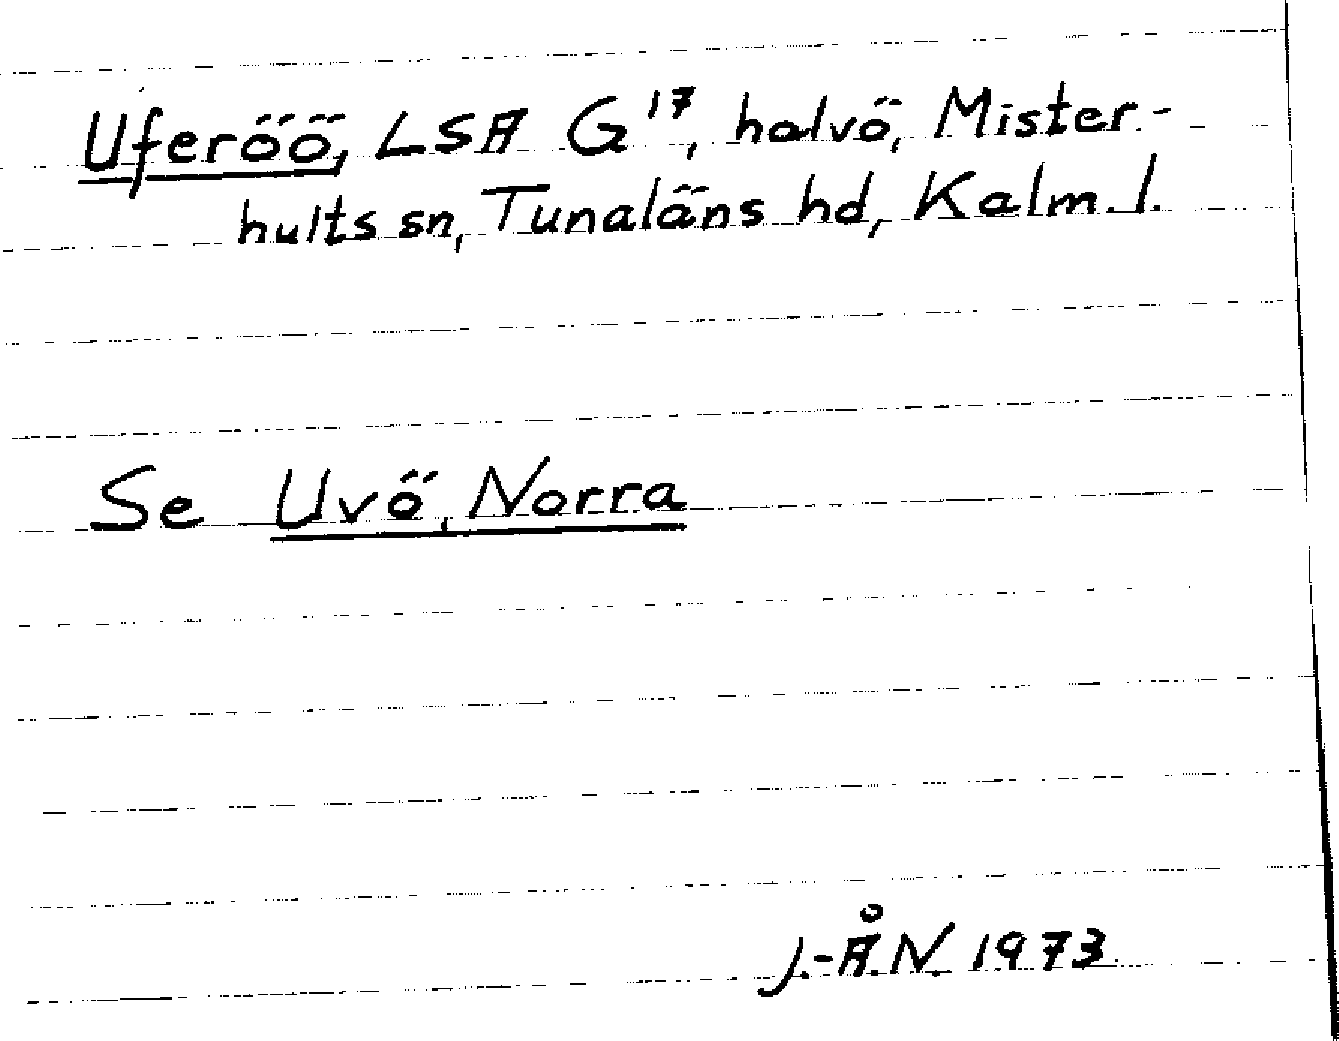 Uferöö, LSA G17, halvö, Mister-
hults sn, Tunaläns hd, Kalm. l.
Se Uvö, Norra
J.-Å.N. 1973